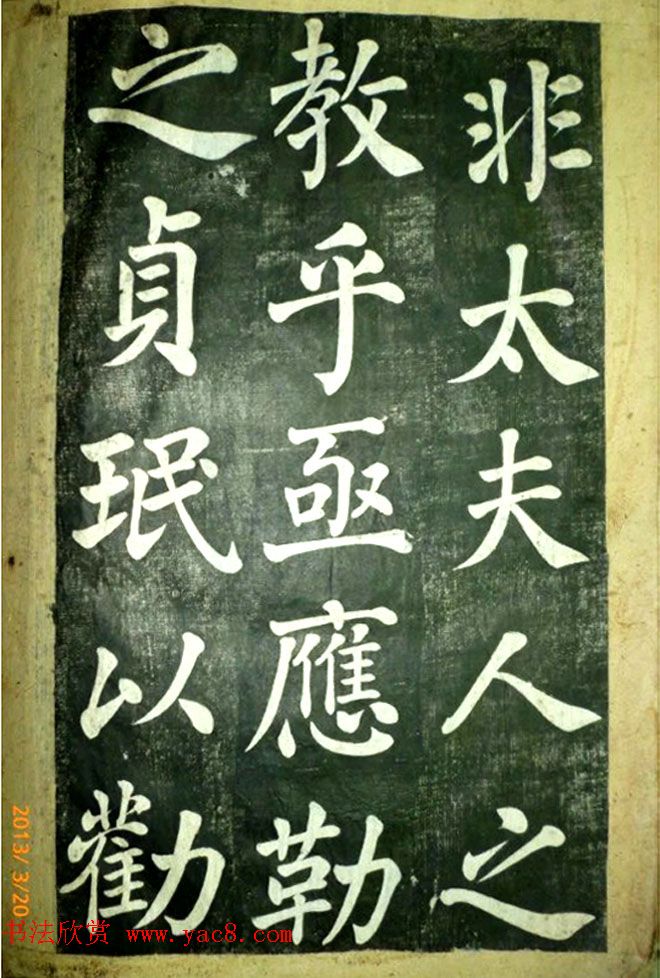 非太夫人之
教乎亟應勒
之貞珉以勸
2013/ 3/20
书法欣赏 www.yac8.com